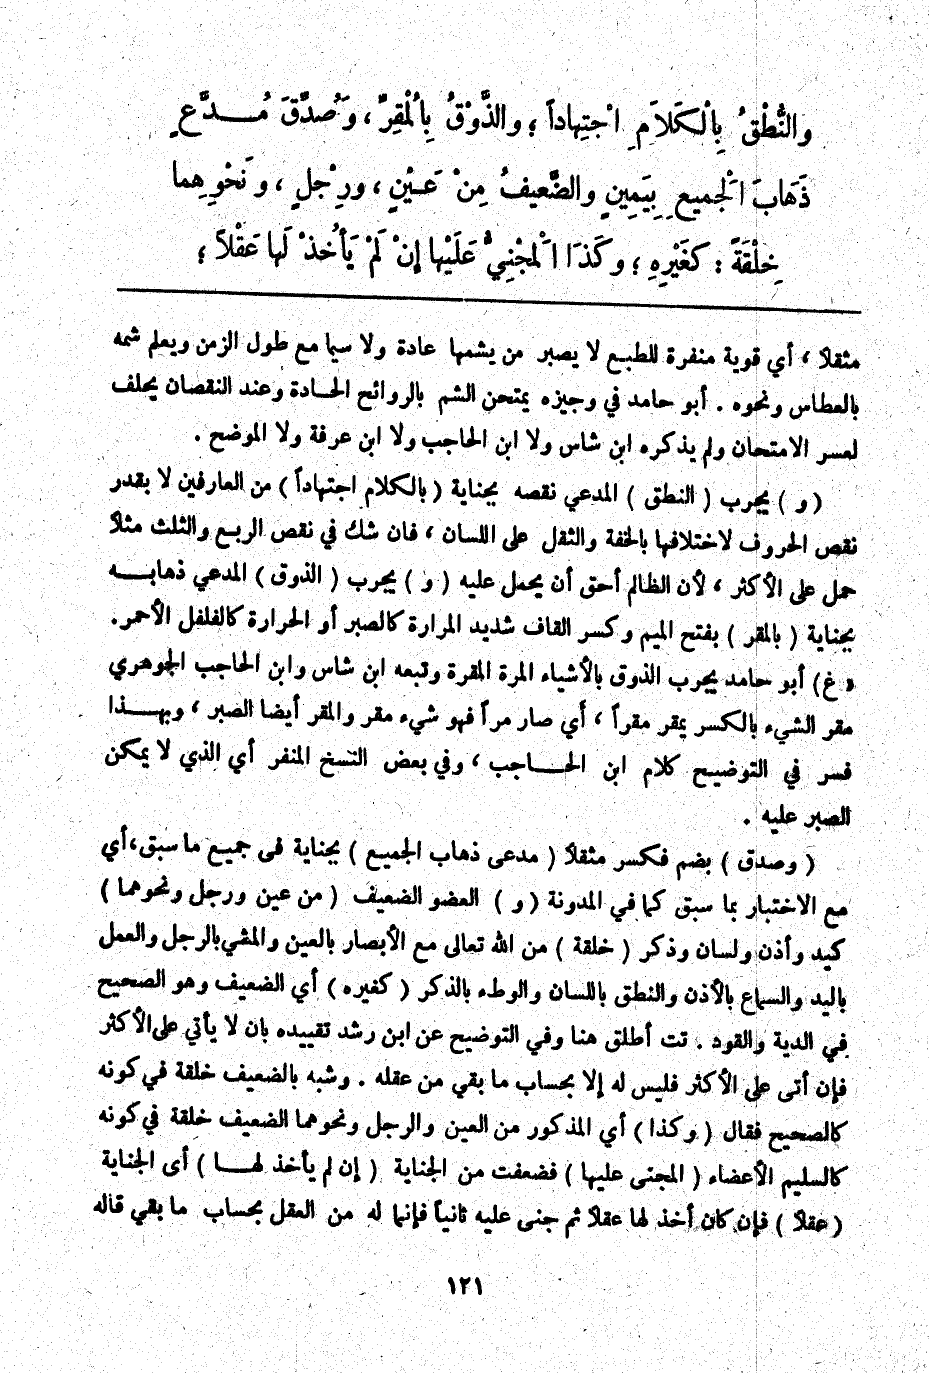 والنُّطْقُ بِالْكَلَامِ اجْتِهاداً ؛ والذَّوْقُ بِالْمَقِرِّ ، وَصُدِّقَ مُـــدَّعٍ
ذَهَابَ الْجميعِ بِيَمِينٍ والضَّعيفُ مِنْ عَـيْنٍ ، ورِجْلٍ ، ونَحْوِهِما
خِلْقَةً : كَغَيْرِهِ ؛ وكَذَا الْمجْنِيُّ عَلَيْها إنْ لَمْ يَأْخُذْ لَها عَقْلاً ؛
مثقلاً ، أي قوية منفرة للطبـع لا يصبر من يشمها عادة ولا سيما مع طول الزمن ويعلم شمه
بالعطاس ونحوه . أبو حامد في وجيزه يمتحن الشم بالروائح الحـادة وعند النقصان يحلف
لعسر الامتحان ولم يذكره ابن شاس ولا ابن الحاجب ولا ابن عرفة ولا الموضح .
( و ) يجرب ( النطق ) المدعي نقصه بجناية ( بالكلام اجتهاداً ) من العارفين لا بقدر
نقص الحروف لاختلافها بالخفة والثقل على اللسان ، فان شك في نقص الربـع والثلث مثلاً
حمل على الأكثر ، لأن الظالم أحق أن يحمل عليه ( و ) يجرب ( الذوق ) المدعي ذهابـــه
بجناية ( بالمقر ) بفتح الميم وكسر القاف شديد المرارة كالصبر أو الحرارة كالفلفل الأحمر.
« غ) أبو حامد يجرب الذوق بالأشياء المرة المقرة وتبعه ابن شاس وابن الحاجب الجوهري
مقر الشيء بالكسر يمقر مقراً ، أي صار مراً فهو شيء مقر والمقر أيضا الصبر ، وبهـــذا
فسر في التوضيـح كلام ابن الحـــاجب ، وفي بعض النسخ المنفر أي الذي لا يمكن
الصبر عليه .
( وصدق ) بضم فكسر مثقلاً ( مدعى ذهاب الجميع ) بجناية فى جميـع ما سبق،أي
مع الاختبار بما سبق كما في المدونة ( و ) العضو الضعيف ( من عين ورجل ونحوهما )
كيد وأذن ولسان وذكر ( خلقة ) من الله تعالى مع الأبصار بالعين والمشي بالرجل والعمل
باليد والسماع بالأذن والنطق باللسان والوطء بالذكر ( كغيره ) أي الضعيف وهو الصحيح
في الدية والقود . تت أطلق هنا وفي التوضيح عن ابن رشد تقييده بان لا يأتي على الأكثر
فإن أتى على الأكثر فليس له إلا بحساب ما بقي من عقله . وشبه بالضعيف خلقة في كونه
كالصحيح فقال ( وكذا ) أي المذكور من العين والرجل ونحوهما الضعيف خلقة في كونه
كالسليم الأعضاء ( المجنى عليها ) فضعفت من الجناية ( إن لم يأخذ لهـــا ) أى الجناية
( عقلاً ) فإن كان أخذ لها عقلاً ثم جنى عليه ثانياً فإنما له من العقل بحساب ما بقي قاله
١٢١